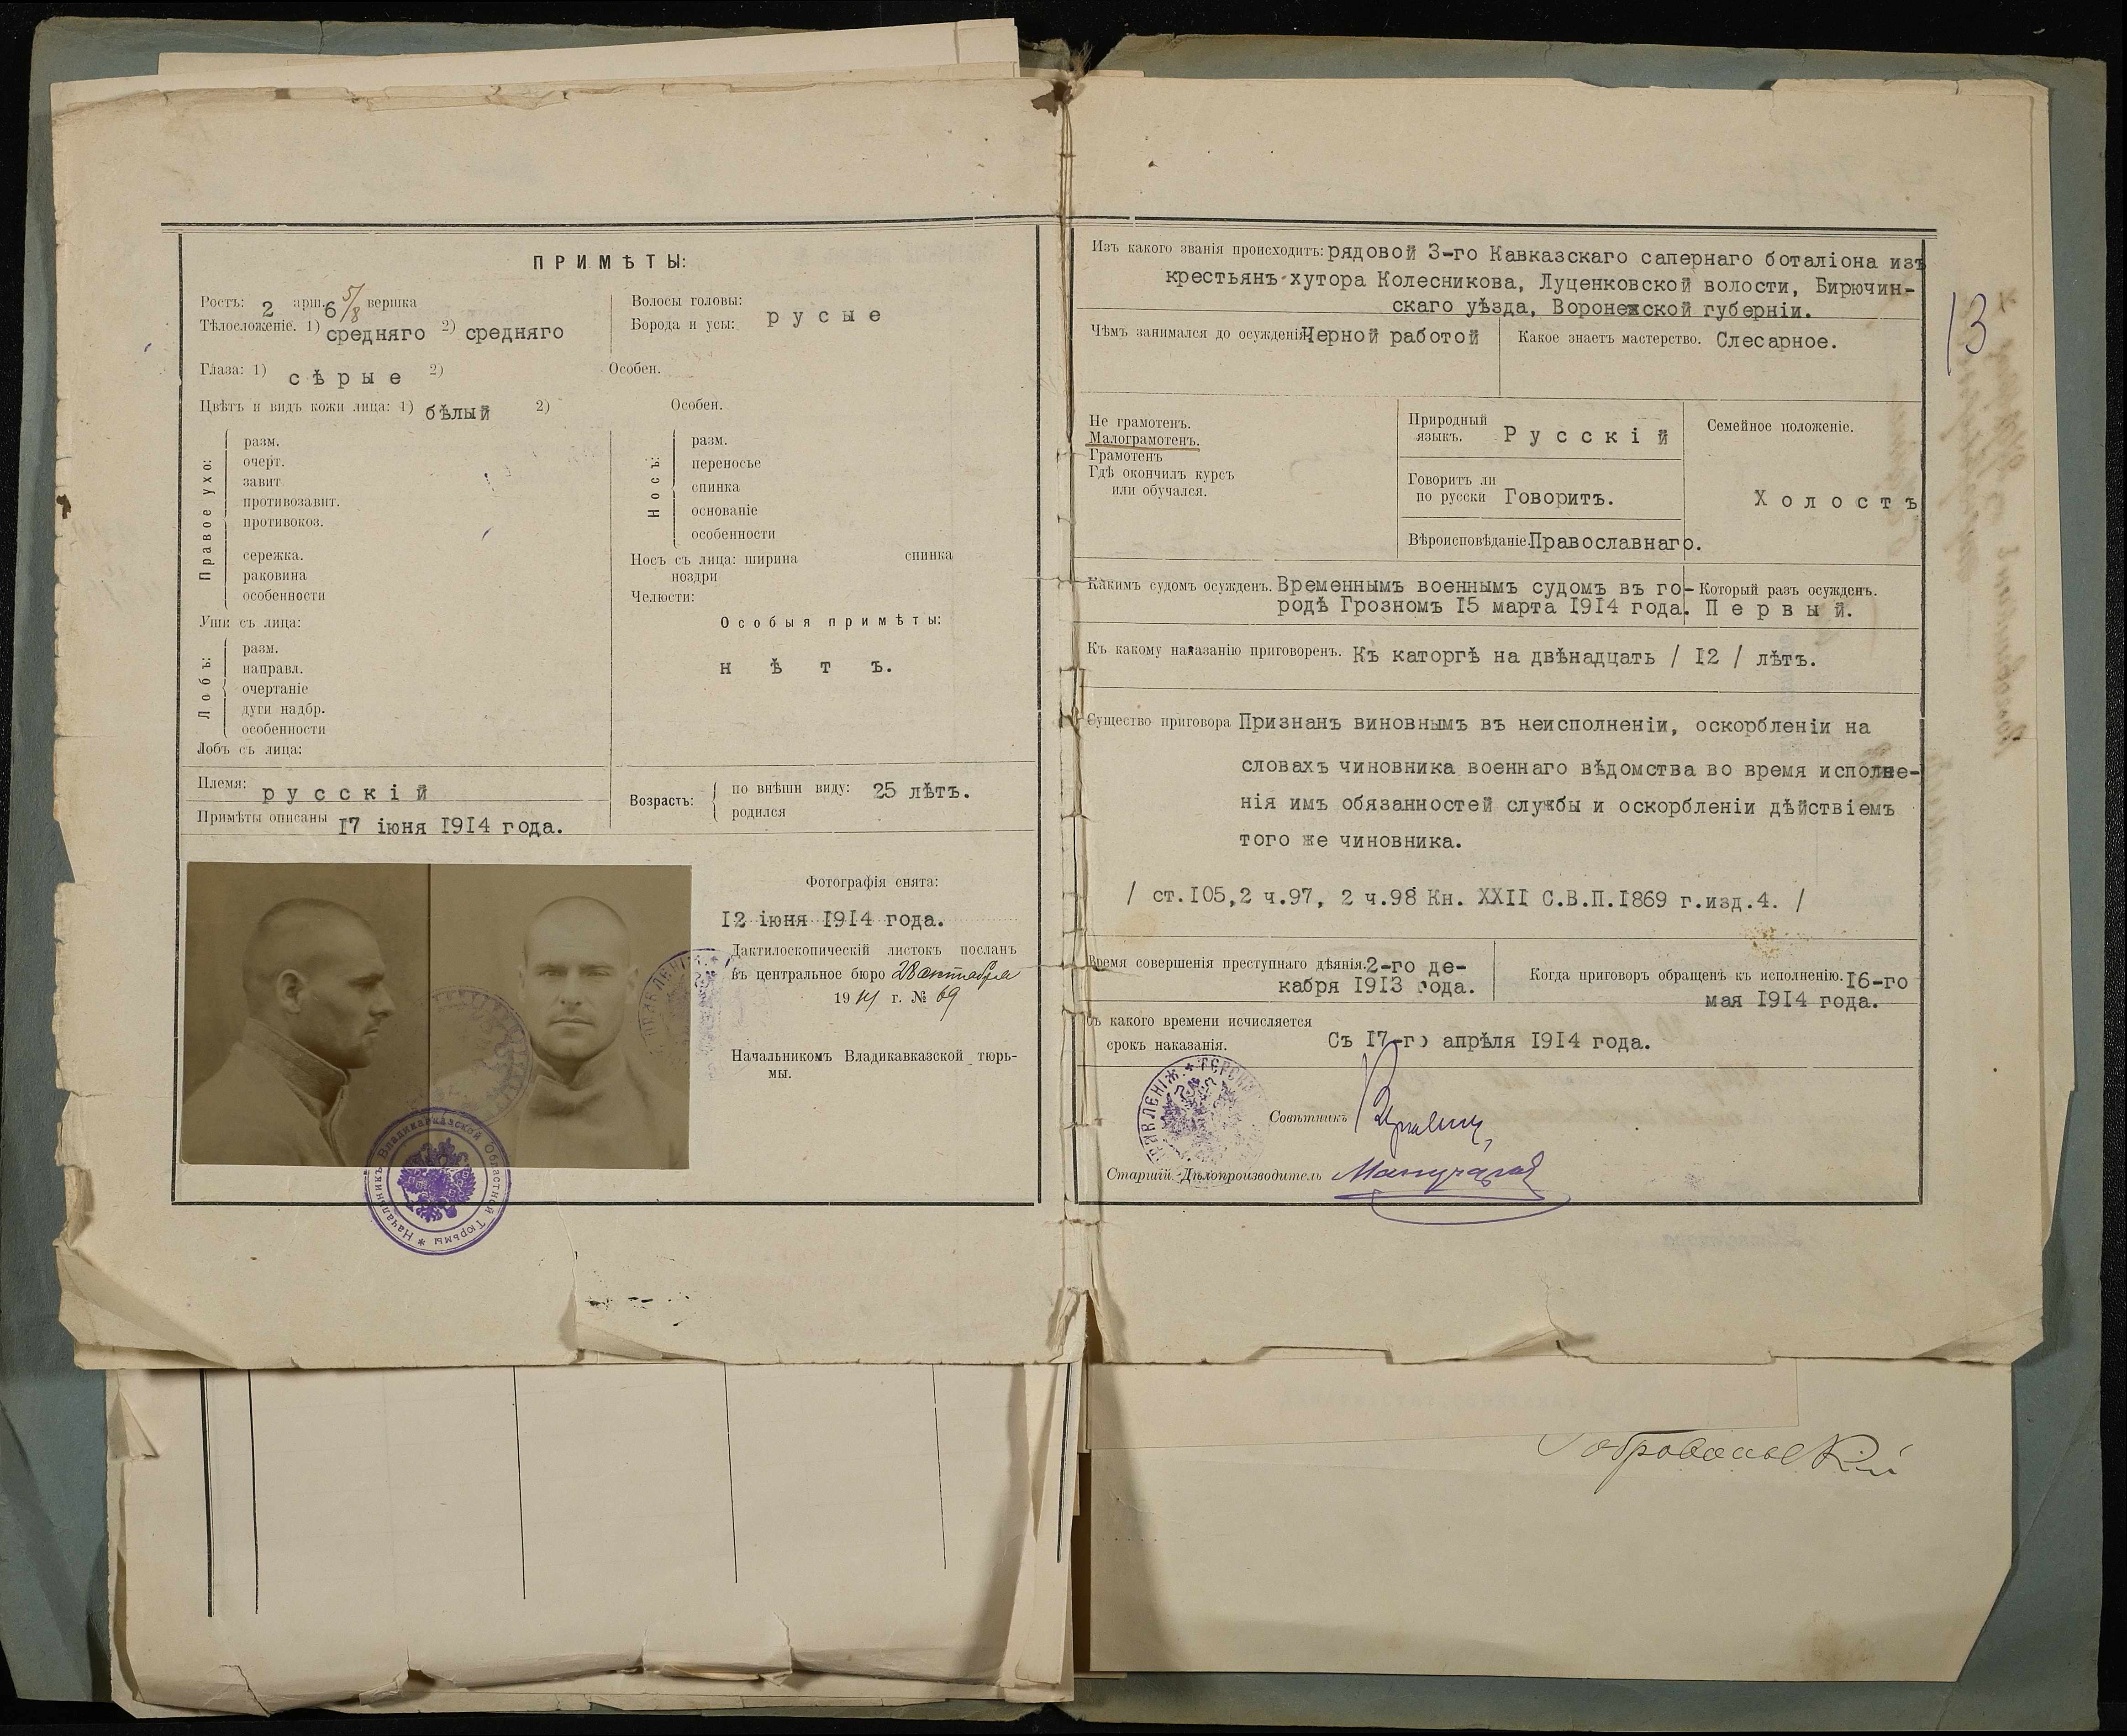 ПРИМѢТЫ:
Ростъ: 2 арш. 6 5/8 вершка
Тѣлосложеніе. 1) средняго 2) средняго
Волосы головы:
Борода и усы: русые
Глаза: 1) сѣрые 2)
Особен.
Цвѣтъ и видъ кожи лица: 1) бѣлый 2)
Особен.
Правое ухо:
разм.
очерт.
завит
противозавит.
противокоз.
сережка.
раковина
особенности
Уши съ лица:
Лобъ:
разм.
направл.
очертаніе
дуги надбр.
особенности
Лобъ съ лица:
Носъ:
разм.
переносье
спинка
основаніе
особенности
Носъ съ лица: ширина спинка
ноздри
Челюсти:
Особыя примѣты:
нѣтъ.
Племя: русскій
Примѣты описаны 17 іюня 1914 года.
Возрастъ:
по внѣшн виду: 25 лѣтъ.
родился
Фотографія снята:
12 іюня 1914 года.
Дактилоскопическій листокъ посланъ
въ центральное бюро 28 октября
1914 г. № 69
Начальникомъ Владикавказской тюрь-
мы.
Начальникъ Владикавказской Областной Тюрьмы
Изъ какого званія происходитъ: рядовой 3-го Кавказскаго сапернаго боталіона изъ
крестьянъ хутора Колесникова, Луценковской волости, Бирючин-
скаго уѣзда, Воронежской губерніи.
13
Чѣмъ занимался до осужденія Черной работой
Какое знаетъ мастерство. Слесарное.
Не грамотенъ.
Малограмотенъ.
Грамотенъ
Гдѣ окончилъ курсъ
или обучался.
Природный
языкъ. Русскій
Говоритъ ли
по русски Говоритъ.
Вѣроисповѣданіе. Православнаго.
Семейное положеніе.
Холостъ
Какимъ судомъ осужденъ. Временнымъ военнымъ судомъ въ го-
родѣ Грозномъ 15 марта 1914 года.
Который разъ осужденъ.
Первый.
Къ какому наказанію приговоренъ. Къ каторгѣ на двѣнадцать / 12 / лѣтъ.
Существо приговора Признанъ виновнымъ въ неисполненіи, оскорбленіи на
словахъ чиновника военнаго вѣдомства во время исполне-
нія имъ обязанностей службы и оскорбленіи дѣйствіемъ
того же чиновника.
/ ст.105,2 ч.97, 2 ч.98 Кн. XXII С.В.П.1869 г.изд.4. /
Время совершенія преступнаго дѣянія. 2-го де-
кабря 1913 года.
Когда приговоръ обращенъ къ исполненію. 16-го
мая 1914 года.
Съ какого времени исчисляется
срокъ наказанія. Съ 17-го апрѣля 1914 года.
Совѣтникъ
Старшій Дѣлопроизводитель